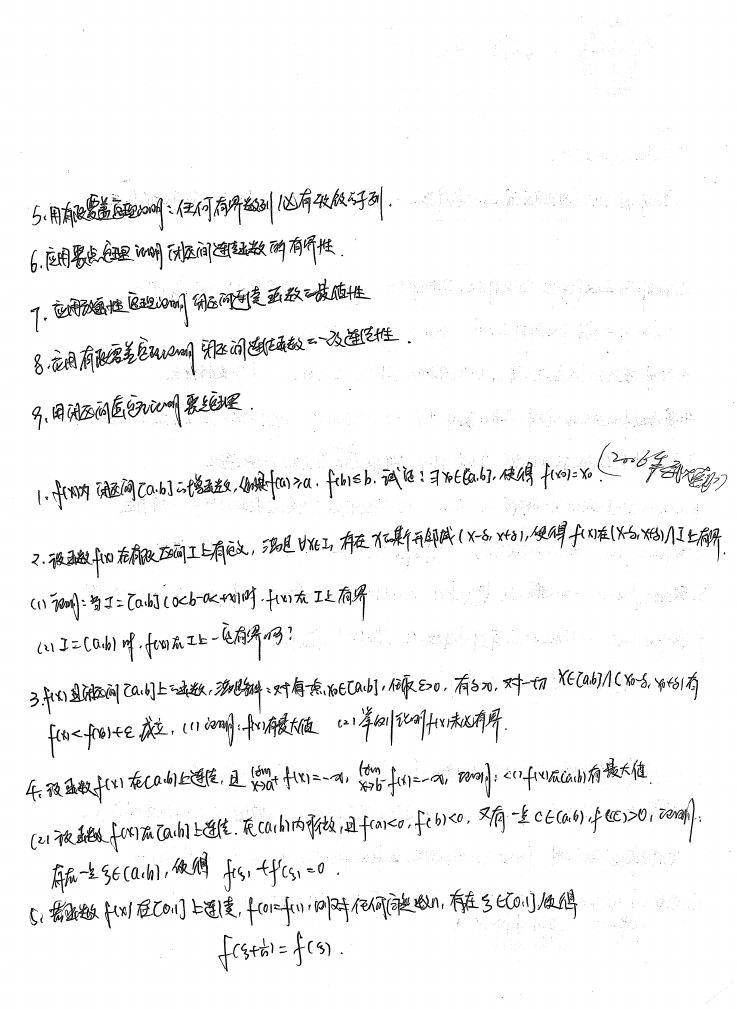 5. 用有限覆盖定理证明：任何有界数列必有收敛子列.
6. 应用聚点定理证明闭区间连续函数的有界性.
7. 应用致密性定理证明闭区间连续函数之最值性
8. 应用有限覆盖定理证明闭区间连续函数之一致连续性.
9. 用闭区间套定理证明聚点定理.
1. f(x)为闭区间[a,b]之增函数, 如果f(a)≥a, f(b)≤b. 试证: ∃x₀∈[a,b], 使得 f(x₀)=x₀. (2006年
2. 设函数f(x)在有限区间I上有定义, 满足∀x∈I, 存在x之某个开邻域(x-δ, x+δ), 使得f(x)在(x-δ, x+δ)∩I上有界.
(1) 证明: 当I=[a,b] (0<b-a<+∞)时, f(x)在I上有界
(2) I=(a,b)时, f(x)在I上一定有界吗?
3. f(x)是闭区间[a,b]上之函数, 满足条件: 对每点x₀∈[a,b], 任取ε>0, 有δ>0, 对一切 x∈[a,b]∩(x₀-δ, x₀+δ)有
f(x)<f(x₀)+ε 成立, (1) 证明: f(x)有最大值 (2) 举例说明f(x)未必有界.
4. 设函数f(x)在(a,b)上连续, 且 lim x→a⁺ f(x)=-∞, lim x→b⁻ f(x)=-∞, 证明: (1) f(x)在(a,b)有最大值.
(2) 设函数f(x)在[a,b]上连续. 在(a,b)内可微, 且f(a)<0, f(b)<0, 又有一点c∈(a,b), f(c)>0, 证明:
存在一点ξ∈(a,b), 使得 f(ξ)+f'(ξ)=0.
5. 若函数f(x)在[0,1]上连续, f(0)=f(1), 则对于任何自然数n, 存在ξ∈[0,1]使得
f(ξ+1/n)=f(ξ).